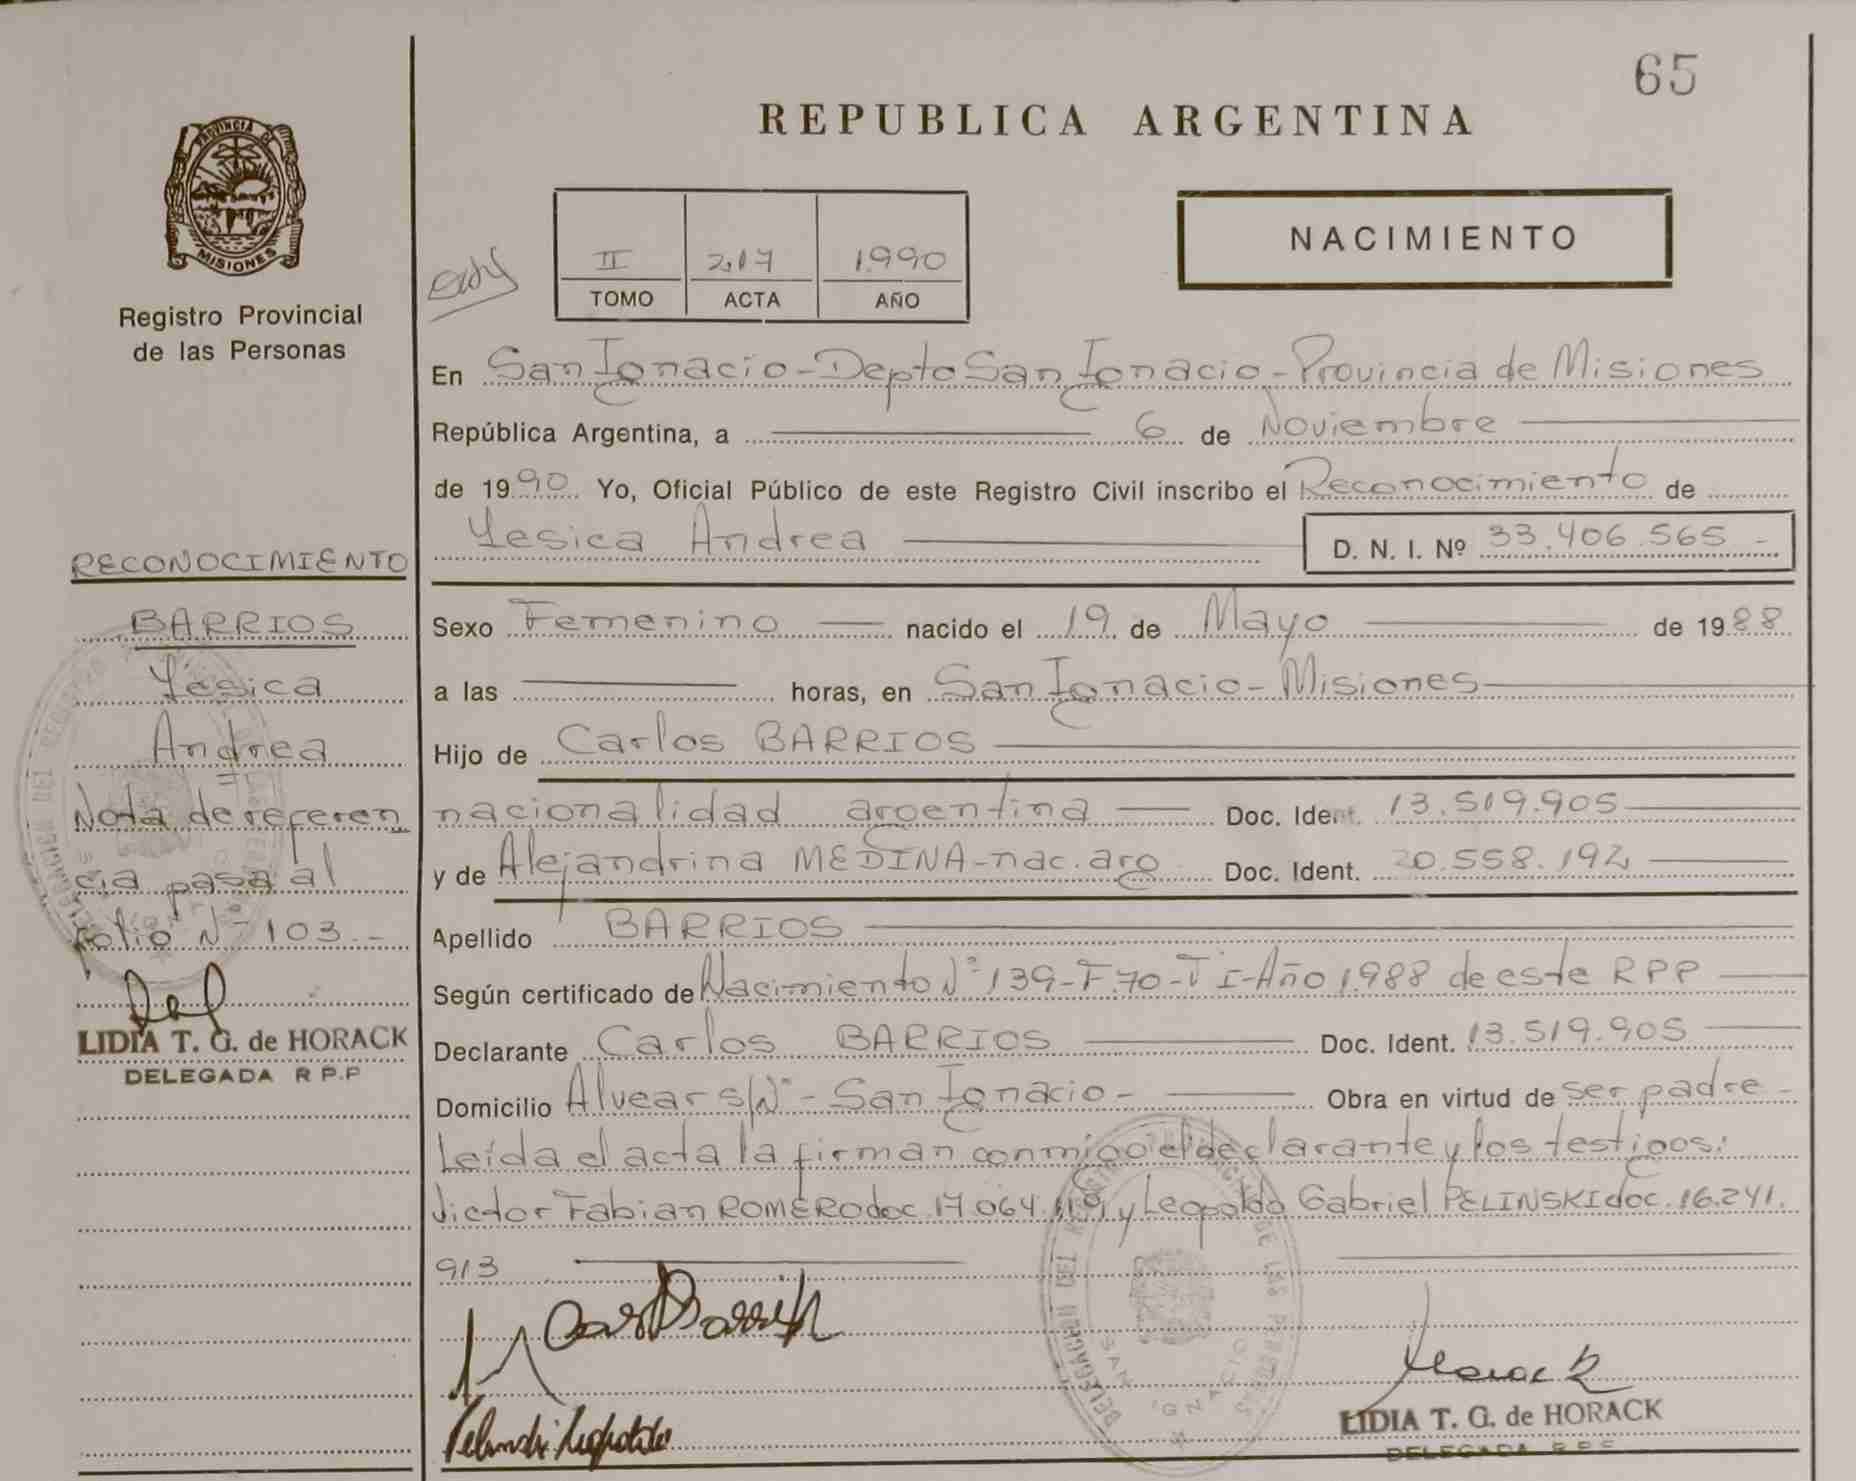 65
REPUBLICA ARGENTINA
PROVINCIA DE
MISIONES
Registro Provincial
de las Personas
II 217 1990
TOMO ACTA AÑO
NACIMIENTO
En San Ignacio - Depto San Ignacio - Provincia de Misiones
República Argentina, a 6 de Noviembre
de 1990 Yo, Oficial Público de este Registro Civil inscribo el Reconocimiento de
Yesica Andrea D. N. I. Nº 33.406.565 -
RECONOCIMIENTO
BARRIOS
Yesica
Andrea
Nota de referen
cia pasa al
Folio Nº 103.-
LIDIA T. G. de HORACK
DELEGADA R P.P
Sexo Femenino nacido el 19 de Mayo de 1988
a las horas, en San Ignacio - Misiones
Hijo de Carlos BARRIOS
nacionalidad argentina Doc. Ident. 13.519.905
y de Alejandrina MEDINA - nac. arg Doc. Ident. 20.558.192
Apellido BARRIOS
Según certificado de Nacimiento Nº 139 - F.70 - T I - Año 1988 de este RPP
Declarante Carlos BARRIOS Doc. Ident. 13.519.905
Domicilio Alvear s/Nº - San Ignacio - Obra en virtud de ser padre -
Leída el acta la firman conmigo el declarante y los testigos:
Victor Fabian ROMERO doc. 17.064. y Leopoldo Gabriel PELINSKI doc. 16.241.
913
LIDIA T. G. de HORACK
DELEGADA R.P.P